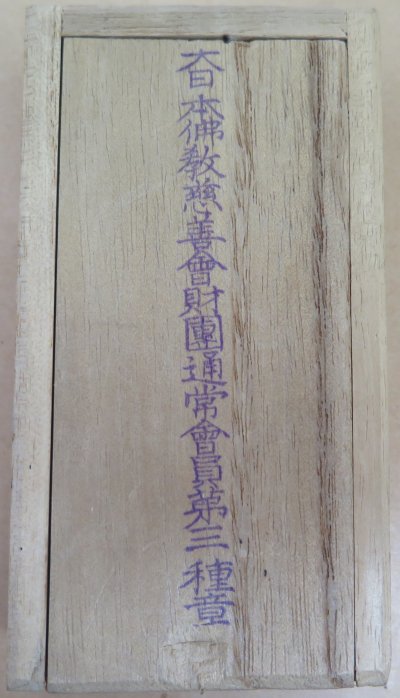 大日本佛教慈善會財團通常會員第三種章